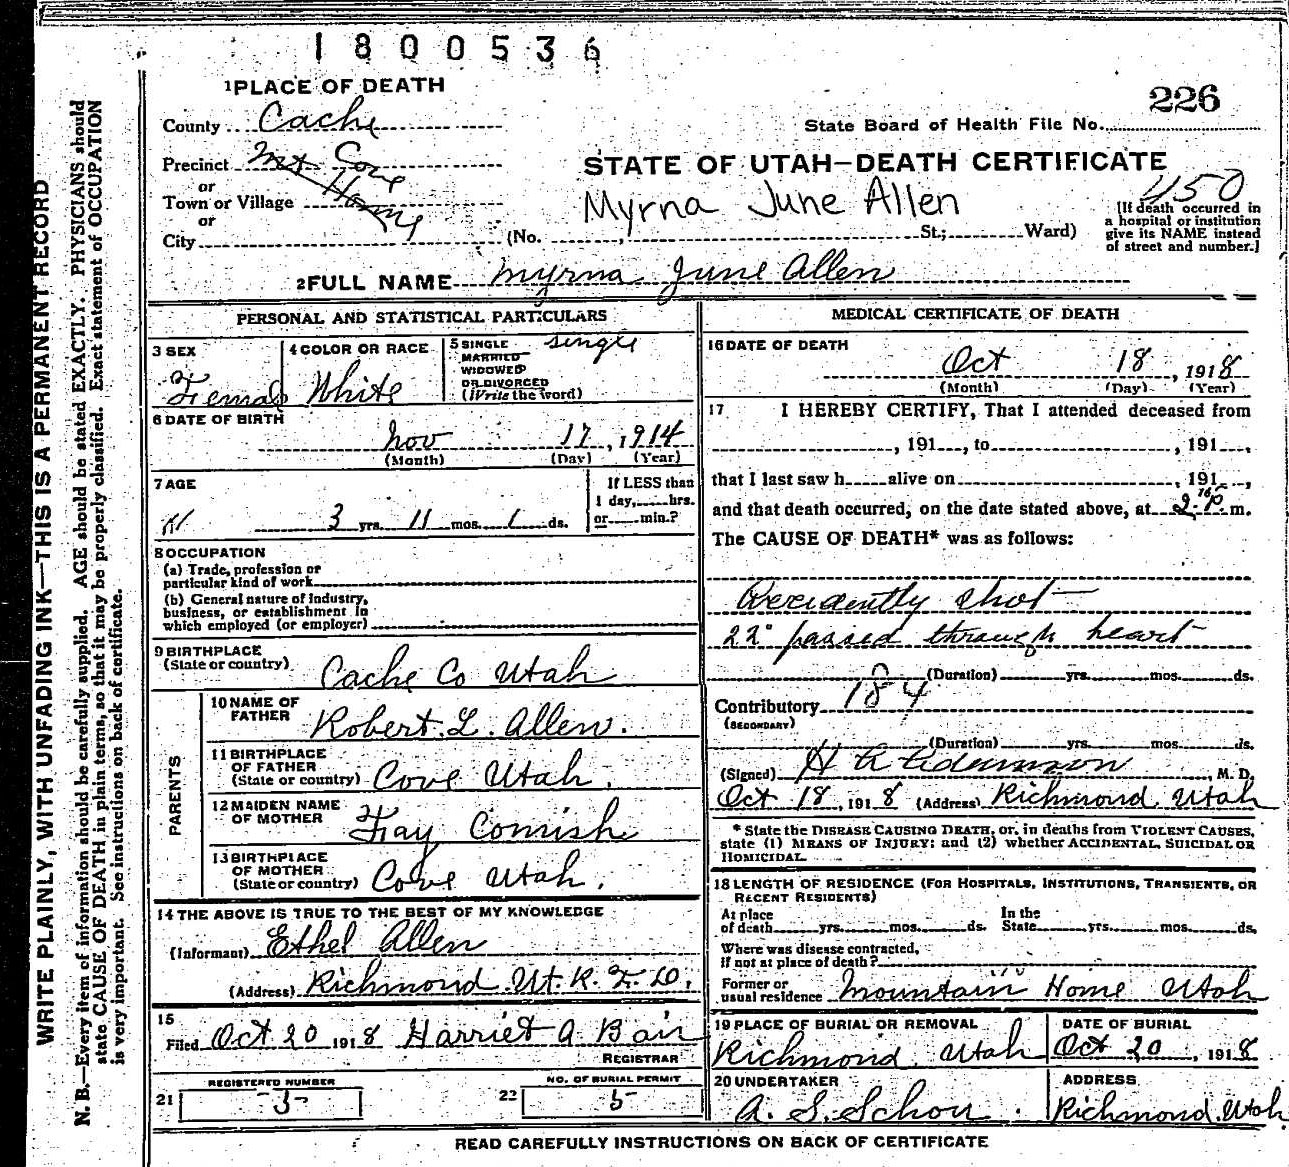 1800536
1 PLACE OF DEATH
226
County Cache
State Board of Health File No.
Precinct Mt Cove
STATE OF UTAH—DEATH CERTIFICATE
or
Town or Village Home
Myrna June Allen
450
or
City (No. , St.; Ward)
[If death occurred in
a hospital or institution
give its NAME instead
of street and number.]
2 FULL NAME Myrna June Allen
PERSONAL AND STATISTICAL PARTICULARS
3 SEX
Female
4 COLOR OR RACE
White
5 SINGLE
MARRIED
WIDOWED
OR DIVORCED
(Write the word)
single
6 DATE OF BIRTH
Nov 17, 1914
(Month) (Day) (Year)
7 AGE
3 yrs. 11 mos. 1 ds.
If LESS than
1 day, hrs.
or min.?
8 OCCUPATION
(a) Trade, profession or
particular kind of work
(b) General nature of industry,
business, or establishment in
which employed (or employer)
9 BIRTHPLACE
(State or country)
Cache Co Utah
PARENTS
10 NAME OF
FATHER
Robert L. Allen.
11 BIRTHPLACE
OF FATHER
(State or country) Cove Utah.
12 MAIDEN NAME
OF MOTHER
Fay Cornish
13 BIRTHPLACE
OF MOTHER
(State or country) Cove Utah.
14 THE ABOVE IS TRUE TO THE BEST OF MY KNOWLEDGE
(Informant) Ethel Allen
(Address) Richmond Ut. R. F. D.
15
Filed Oct 20 1918 Harriet A Bair
REGISTRAR
21 REGISTERED NUMBER
-3-
22 NO. OF BURIAL PERMIT
5
MEDICAL CERTIFICATE OF DEATH
16 DATE OF DEATH
Oct 18, 1918
(Month) (Day) (Year)
17 I HEREBY CERTIFY, That I attended deceased from
, 191 , to , 191 ,
that I last saw h alive on , 191 ,
and that death occurred, on the date stated above, at m.
The CAUSE OF DEATH* was as follows:
Accidently shot
22 passed through heart
(Duration) yrs. mos. ds.
Contributory 184
(SECONDARY)
(Duration) yrs. mos. ds.
(Signed) H A Adamson, M. D.
Oct 18, 1918 (Address) Richmond Utah
* State the DISEASE CAUSING DEATH, or, in deaths from VIOLENT CAUSES,
state (1) MEANS OF INJURY: and (2) whether ACCIDENTAL, SUICIDAL OR
HOMICIDAL.
18 LENGTH OF RESIDENCE (FOR HOSPITALS, INSTITUTIONS, TRANSIENTS, OR
RECENT RESIDENTS)
At place
of death yrs. mos. ds.
In the
State yrs. mos. ds.
Where was disease contracted,
if not at place of death?
Former or
usual residence Mountain Home Utah
19 PLACE OF BURIAL OR REMOVAL
Richmond Utah
DATE OF BURIAL
Oct 20, 1918
20 UNDERTAKER
A. S. Schow.
ADDRESS
Richmond Utah
READ CAREFULLY INSTRUCTIONS ON BACK OF CERTIFICATE
WRITE PLAINLY, WITH UNFADING INK—THIS IS A PERMANENT RECORD
N. B.—Every item of information should be carefully supplied. AGE should be stated EXACTLY. PHYSICIANS should
state CAUSE OF DEATH in plain terms, so that it may be properly classified. Exact statement of OCCUPATION
is very important. See instructions on back of certificate.